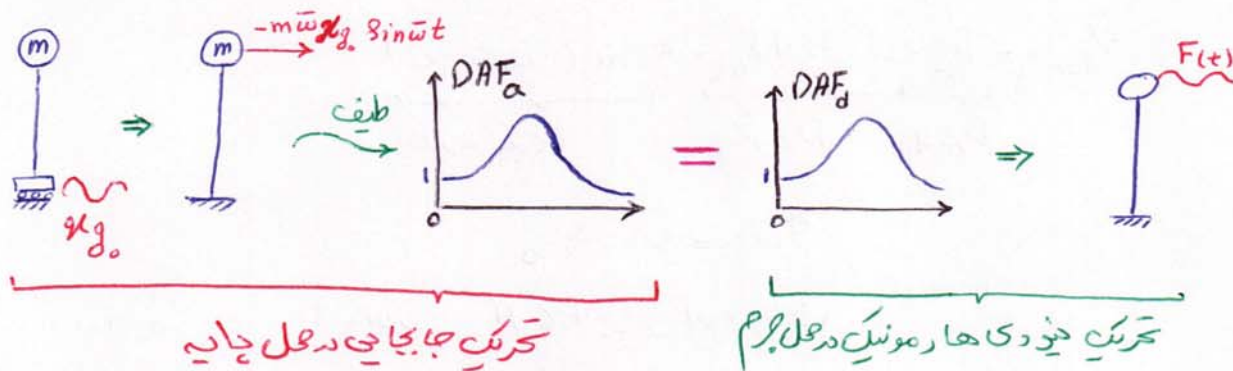 m
m
-mω̄x_g₀ Sin ω̄t
x_g₀
طیف
DAFₐ
1
0
=
DAF_d
1
0
F(t)
تحریک جابجایی در محل پایه
تحریک نیروی هارمونیک در محل جرم